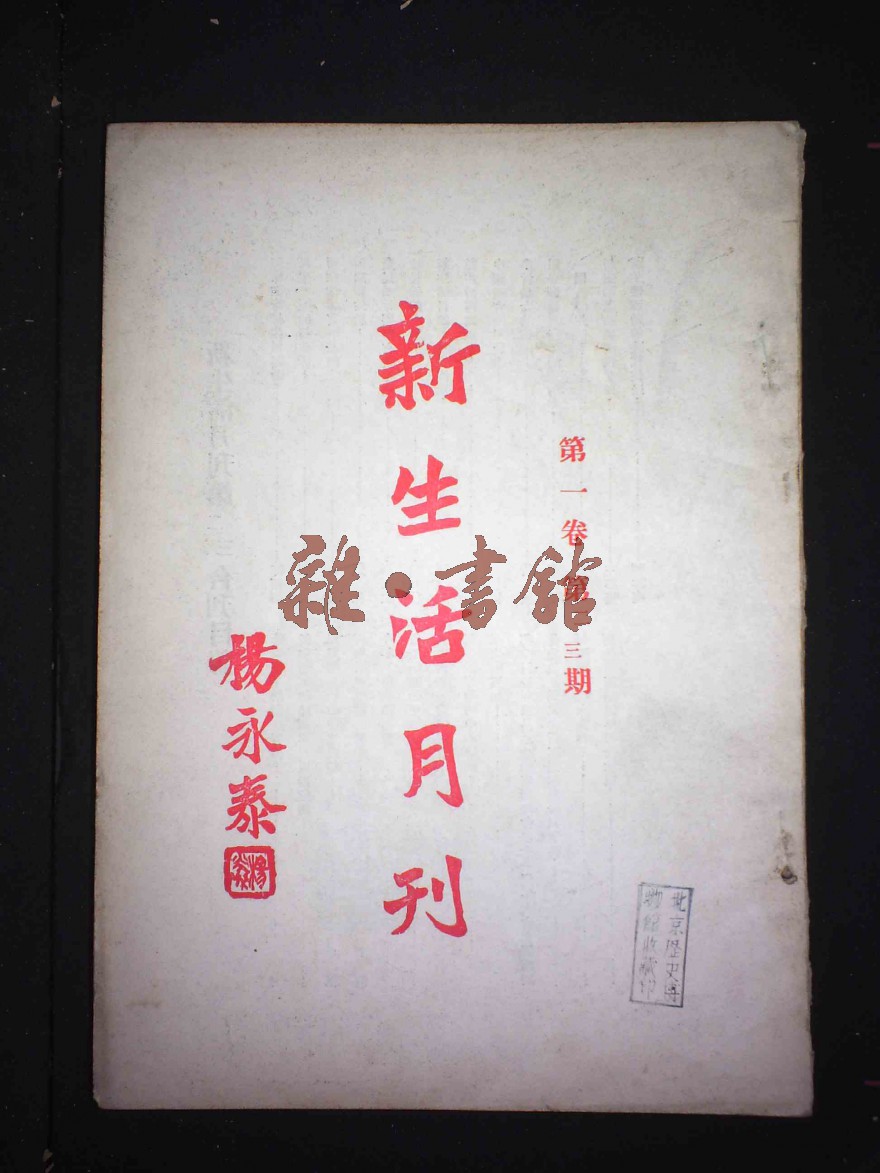 第一卷第三期
新生活月刊
楊永泰
雜·書館
北京歷史博
物館收藏印